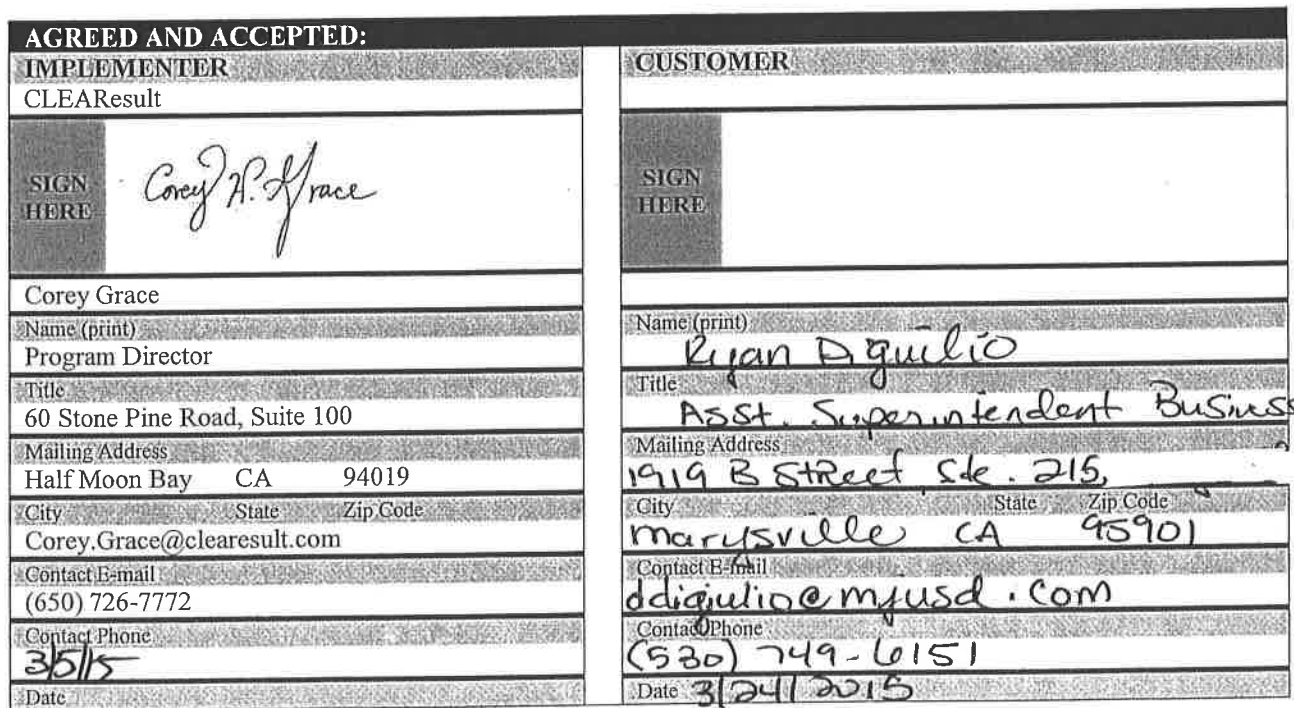 AGREED AND ACCEPTED:
IMPLEMENTER
CLEAResult
SIGN
HERE
Corey W. Grace
Corey Grace
Name (print)
Program Director
Title
60 Stone Pine Road, Suite 100
Mailing Address
Half Moon Bay CA 94019
City State Zip Code
Corey.Grace@clearesult.com
Contact E-mail
(650) 726-7772
Contact Phone
3/5/15
Date
CUSTOMER
SIGN
HERE
Name (print)
Ryan Digiulio
Title
Asst. Superintendent Business
Mailing Address
1919 B Street Ste. 215,
City State Zip Code
Marysville CA 95901
Contact E-mail
ddigiulio@mjusd.com
Contact Phone
(530) 749-6151
Date 3/24/2015